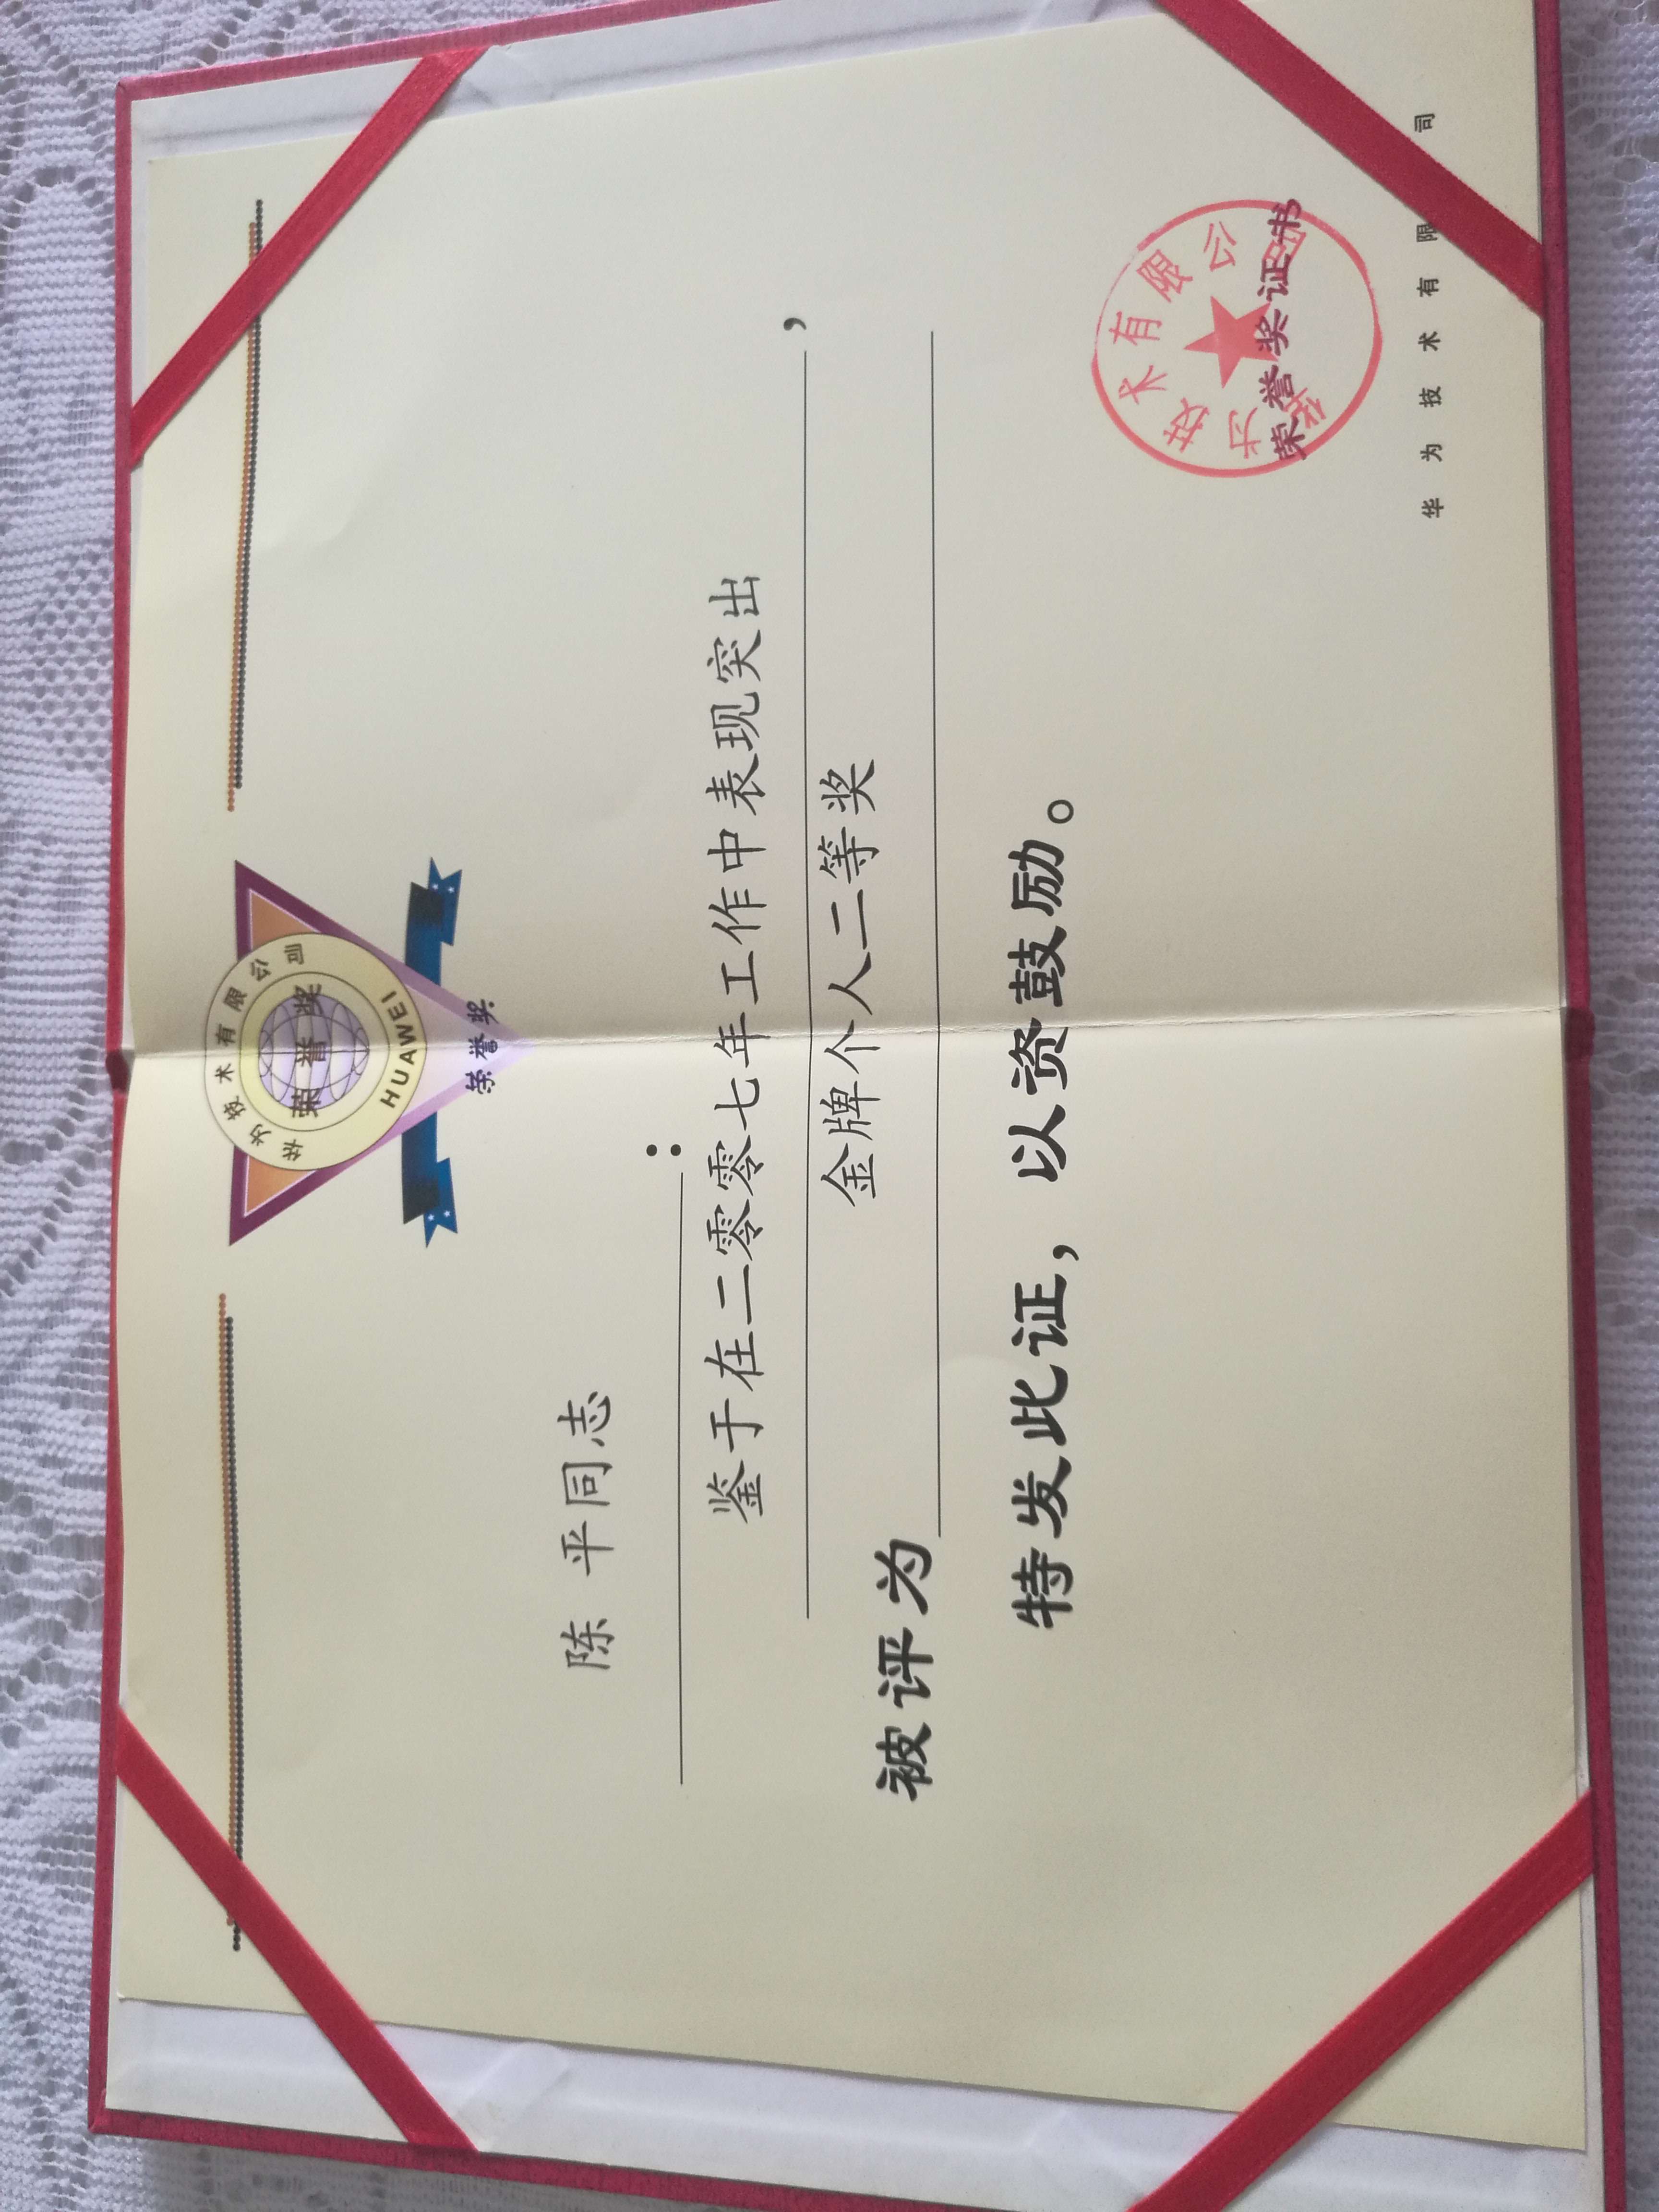 华为技术有限公司
荣誉奖
HUAWEI
荣誉奖
陈 平同志
:
鉴于在二零零七年工作中表现突出
,
金牌个人二等奖
被评为
特发此证，以资鼓励。
华为技术有限公司
荣誉奖证书
华为技术有限 司